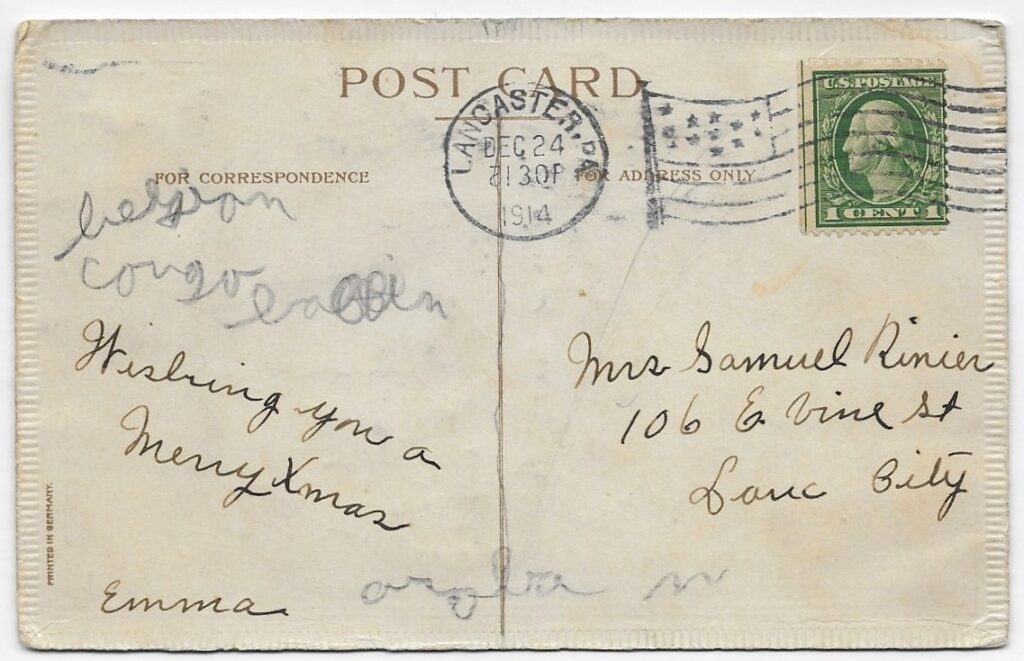 POST CARD
FOR CORRESPONDENCE
FOR ADDRESS ONLY
LANCASTER, PA.
DEC 24
1914
U.S. POSTAGE
1 CENT 1
congo
Wishing you a
Merry Xmas
Emma
Mrs Samuel Rinier
106 E Vine St
Lanc City
PRINTED IN GERMANY.